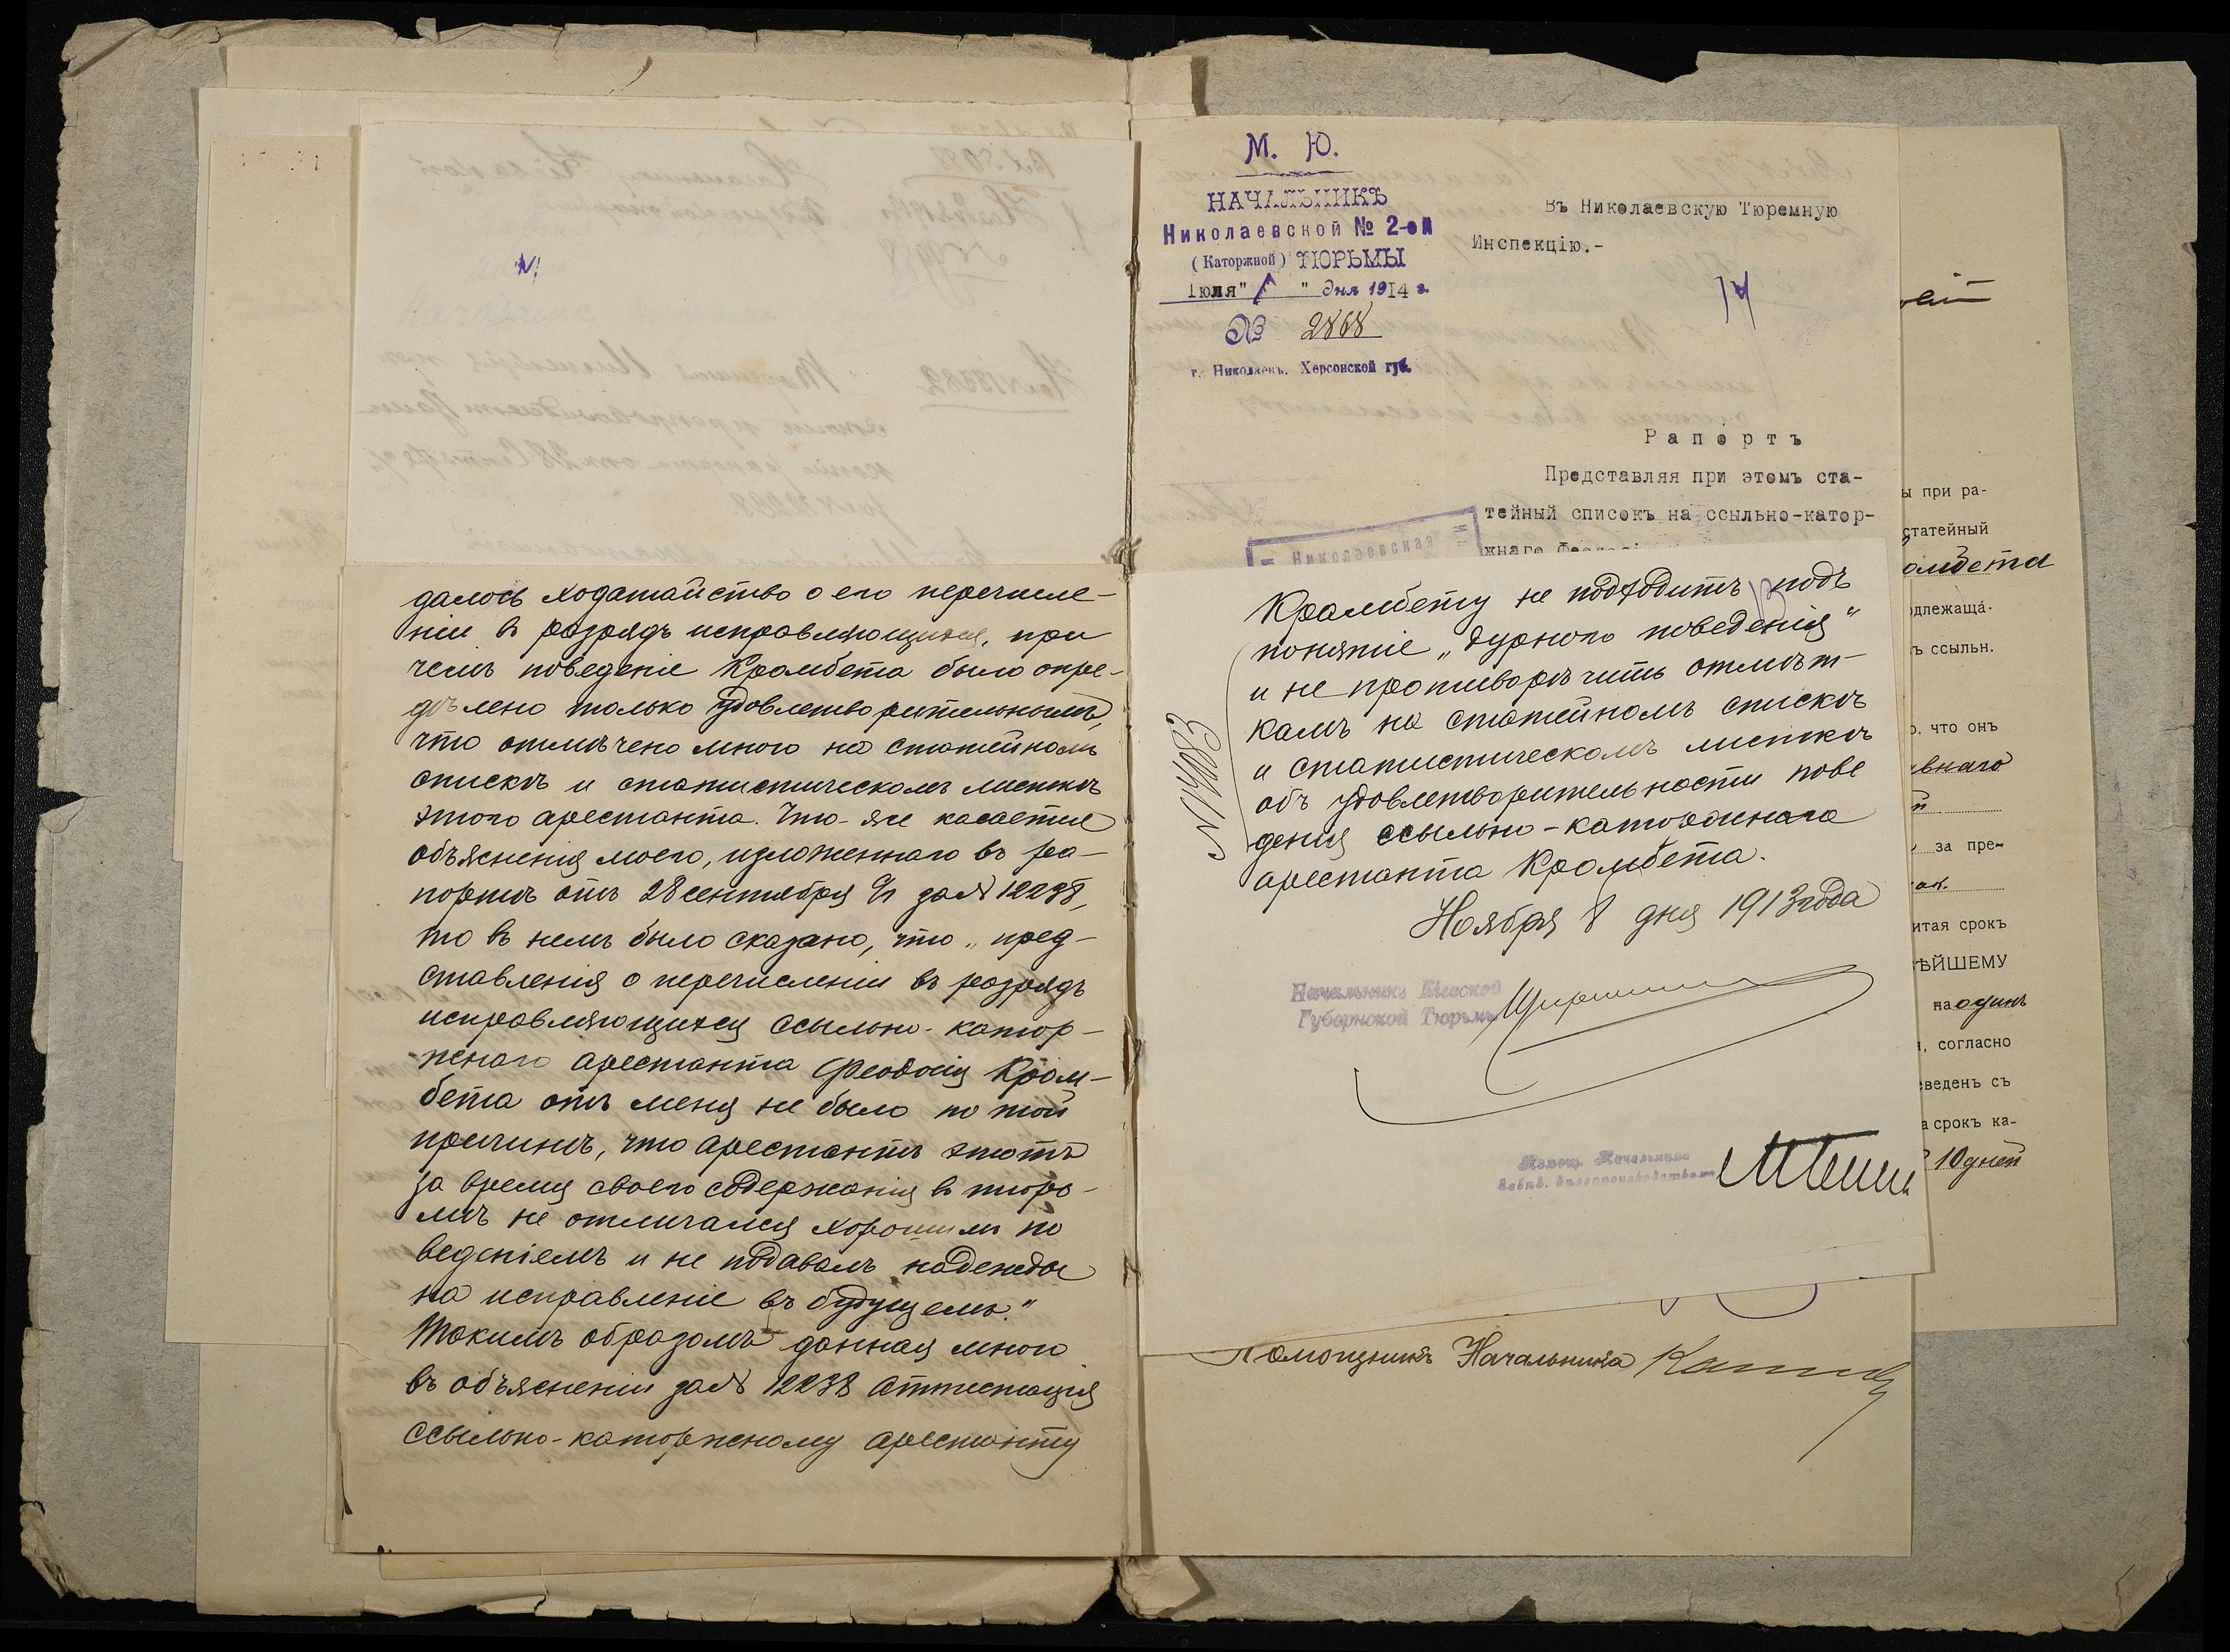 далось ходатайство о его перечисле-
ніи въ разрядъ исправляющихся, при
чемъ поведеніе Кромбета было опре-
дѣлено только удовлетворительнымъ,
что отмѣчено мною на статейномъ
спискѣ и статистическомъ листкѣ
этого арестанта. Что-же касается
объясненія моего, изложеннаго въ ра-
портѣ отъ 28 сентября с/г за № 12238,
то въ немъ было сказано, что „пред-
ставленія о перечисленіи въ разрядъ
исправляющихся ссыльно-катор-
жнаго арестанта Феодосія Кром-
бета отъ меня не было по той
причинѣ, что арестантъ этотъ
за время своего содержанія въ тюрь-
мѣ не отличался хорошимъ по
веденіемъ и не подавалъ надежды
на исправленіе въ будущемъ."
Такимъ образомъ данная мною
въ объясненіи за № 12238 аттестація
ссыльно-каторжному арестанту
М. Ю.
НАЧАЛЬНИКЪ
Николаевской № 2-ой
(Каторжной) ТЮРЬМЫ
Іюля " " дня 1914 г.
№ 2868
г. Николаевъ, Херсонской губ.
Въ Николаевскую Тюремную
Инспекцію.-
14
Рапортъ
Представляя при этомъ ста-
тейный списокъ на ссыльно-катор-
жнаго
Николаевская
Кромбету не подходитъ подъ
понятіе „дурного поведенія"
и не противорѣчитъ отмѣт-
камъ на статейномъ спискѣ
и статистическомъ листкѣ
объ удовлетворительности пове
денія ссыльно-каторжнаго
арестанта Кромбета.
Ноября 8 дня 1913 года
Начальникъ Кіевской
Губернской Тюрьмы
Помощ. Начальника
завѣд. дѣлопроизводствомъ
Помощникъ Начальника
ы при ра-
статейный
омбета
длежаща-
ъ ссыльн.
о, что онъ
внаго
за пре-
итая срокъ
ѢЙШЕМУ
на одинъ
, согласно
еведенъ съ
а срокъ ка-
10 дней